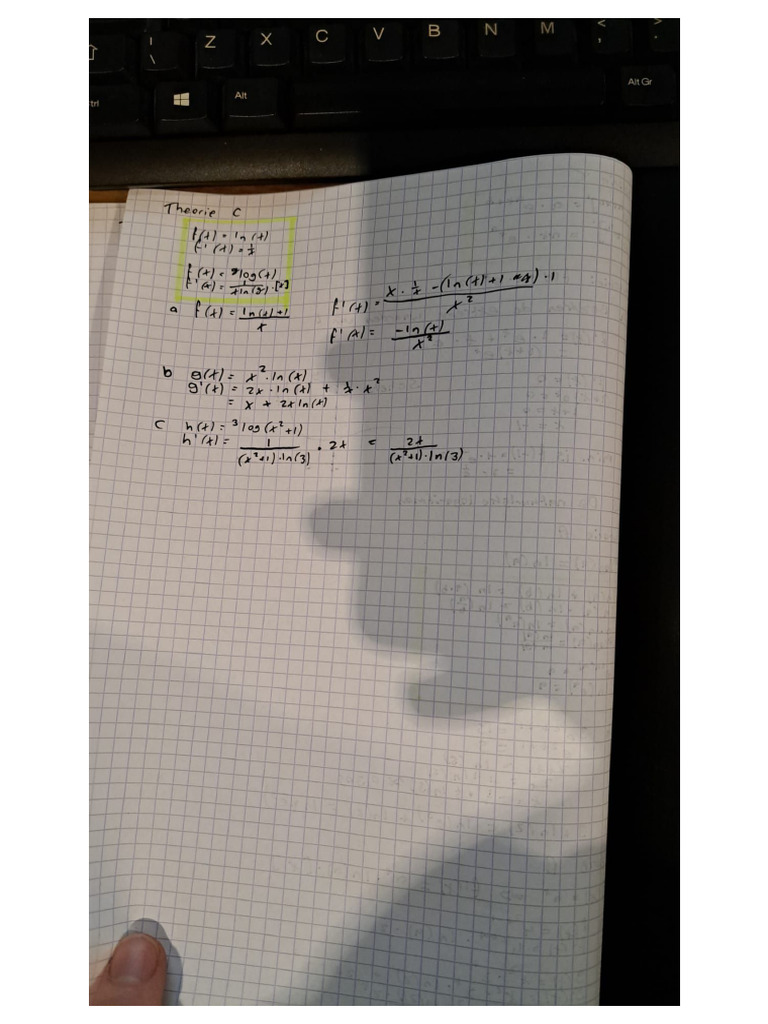 Z X C V B N M < ,
| \
Alt
Alt Gr
trl
Theorie C
f(x) = ln(x)
f'(x) = 1/x
f(x) = ᵍlog(x)
f'(x) = 1/(x ln(g)) · [x]
a f(x) = (ln(x)+1)/x
f'(x) = (x · 1/x - (ln(x)+1) · 1)/x²
f'(x) = -ln(x)/x²
b g(x) = x² · ln(x)
g'(x) = 2x · ln(x) + 1/x · x²
= x + 2x ln(x)
c h(x) = ³log(x²+1)
h'(x) = 1/((x²+1)·ln(3)) · 2x = 2x/((x²+1)·ln(3))